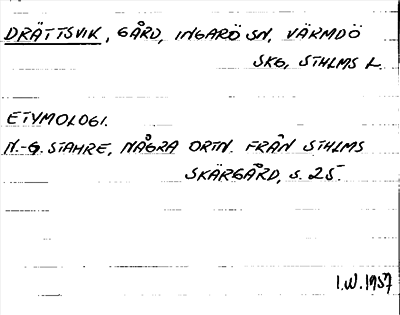 DRÄTTSVIK, GÅRD, INGARÖ SN, VÄRMDÖ
SKG, STHLMS L.
ETYMOLOGI.
N.-G. STAHRE, NÅGRA ORTN. FRÅN STHLMS
SKÄRGÅRD, S. 25.
I.W. 1957